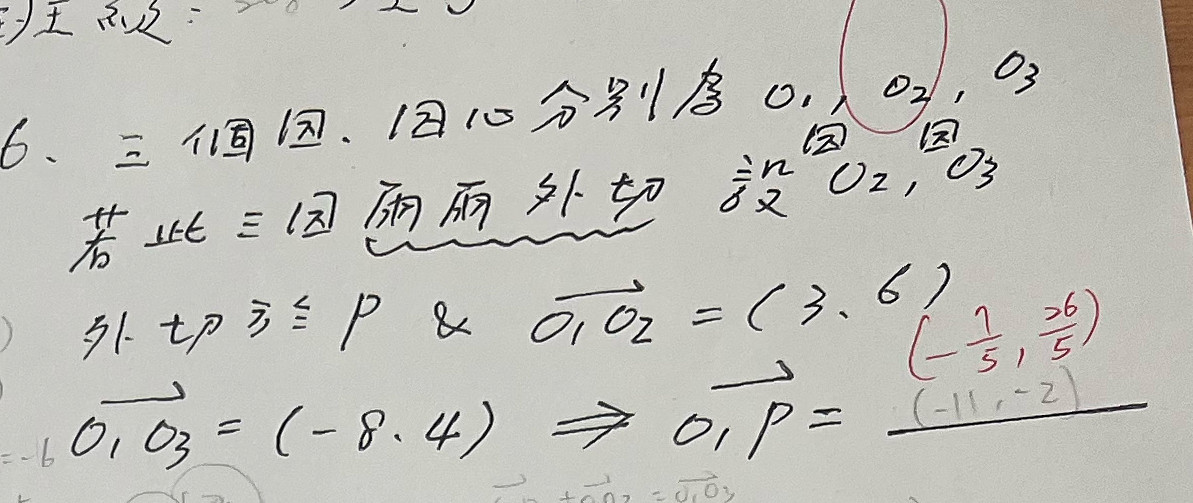 6、三個圓、圓心分別為 O₁, O₂, O₃
若此三圓兩兩外切 設 圓O₂, 圓O₃
外切於 P & $\overrightarrow{O_1O_2}$ = (3、6)
(-7/5, 26/5)
$\overrightarrow{O_1O_3}$ = (-8、4) ⇒ $\overrightarrow{O_1P}$ = (-11,-2)
=-6